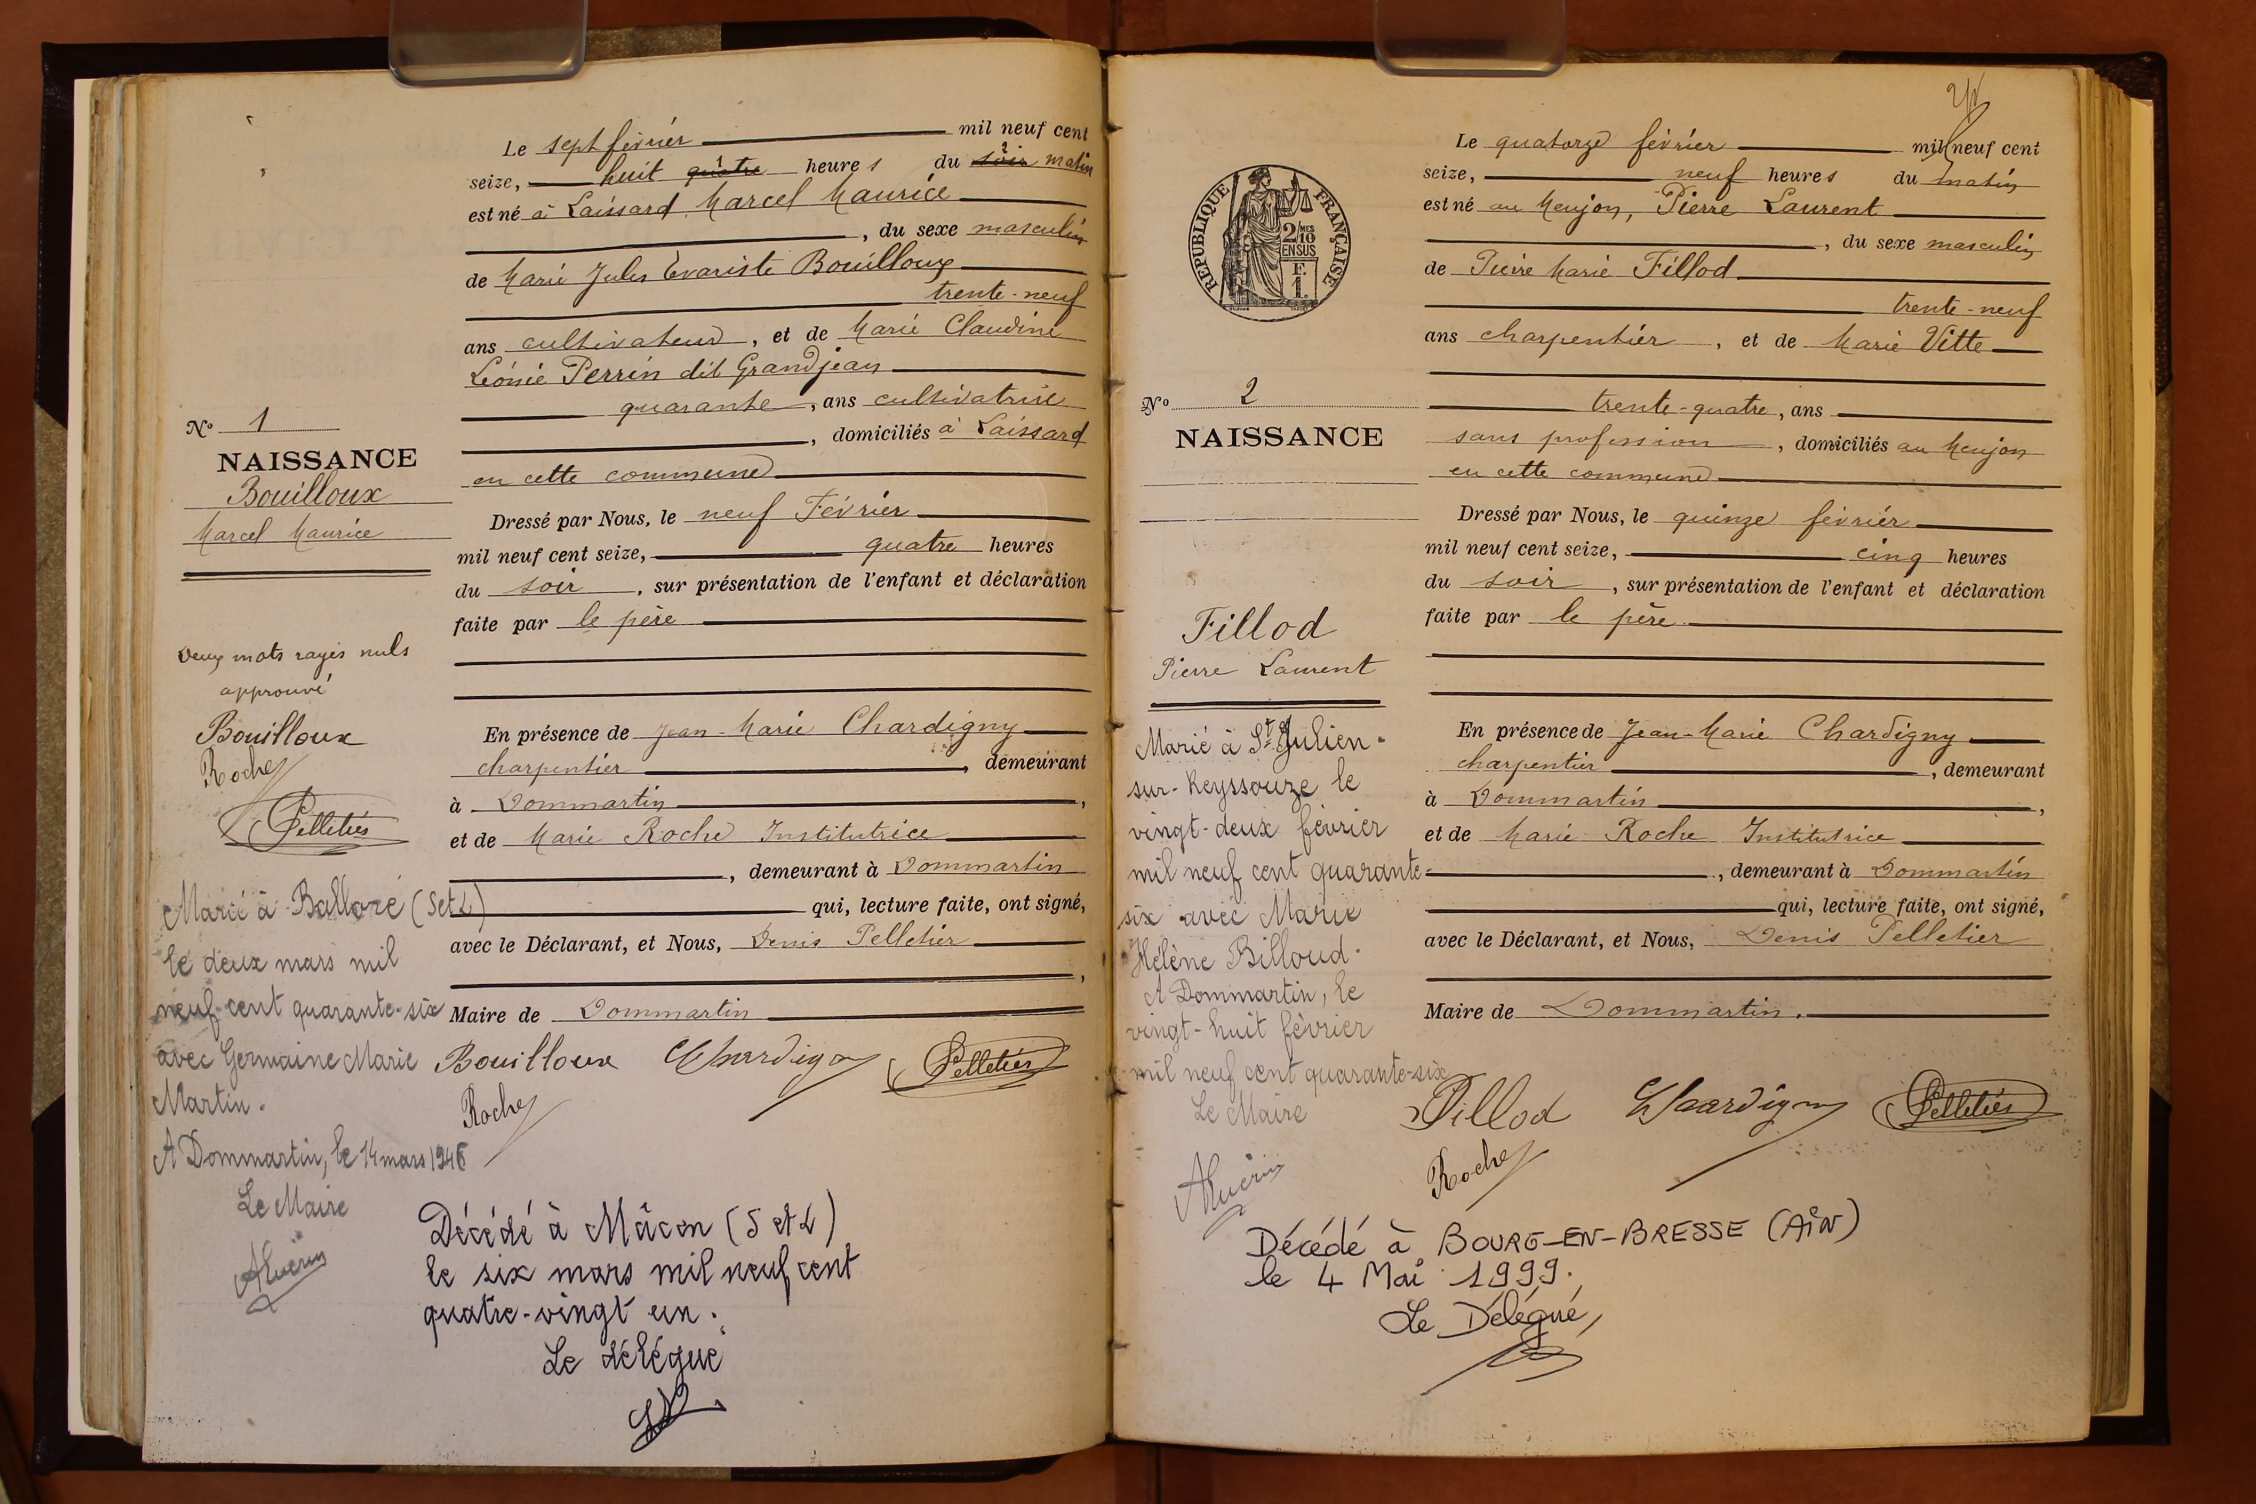 Le sept février mil neuf cent
seize, huit quatre heures du soir matin
est né à Laissard Marcel Maurice
, du sexe masculin
de Marie Jules Evariste Bouilloux
trente-neuf
ans cultivateur, et de Marie Claudine
Léonie Perrin dit Grandjean
quarante, ans cultivatrice
, domiciliés à Laissard
en cette commune
Nº 1
NAISSANCE
Bouilloux
Marcel Maurice
Dressé par Nous, le neuf Février
mil neuf cent seize, quatre heures
du soir, sur présentation de l'enfant et déclaration
faite par le père
Deux mots rayés nuls
approuvé
Bouilloux
Roche
Pelletier
En présence de Jean-Marie Chardigny
charpentier, demeurant
à Dommartin,
et de Marie Roche Institutrice
, demeurant à Dommartin
qui, lecture faite, ont signé,
avec le Déclarant, et Nous, Denis Pelletier
,
Maire de Dommartin
Bouilloux Chardigny Pelletier
Roche
Marié à Balloré (S et L)
le deux mars mil
neuf cent quarante-six
avec Germaine Marie
Martin.
A Dommartin, le 14 mars 1946
Le Maire
Décédé à Mâcon (S et L)
le six mars mil neuf cent
quatre-vingt un.
Le délégué
RÉPUBLIQUE FRANÇAISE
2/10 MES
EN SUS
F.
1.
Le quatorze février mil neuf cent
seize, neuf heures du matin
est né au Meujon, Pierre Laurent
, du sexe masculin
de Pierre Marie Fillod
trente-neuf
ans charpentier, et de Marie Vitte
trente-quatre, ans
sans profession, domiciliés au Meujon
en cette commune
Nº 2
NAISSANCE
Fillod
Pierre Laurent
Dressé par Nous, le quinze février
mil neuf cent seize, cinq heures
du soir, sur présentation de l'enfant et déclaration
faite par le père
En présence de Jean-Marie Chardigny
charpentier, demeurant
à Dommartin,
et de Marie Roche Institutrice
, demeurant à Dommartin
qui, lecture faite, ont signé,
avec le Déclarant, et Nous, Denis Pelletier
Maire de Dommartin.
Fillod Chardigny Pelletier
Roche
Marié à St Julien-
sur-Reyssouze le
vingt-deux février
mil neuf cent quarante-
six avec Marie
Hélène Billoud.
A Dommartin, le
vingt-huit février
mil neuf cent quarante-six
Le Maire
Décédé à BOURG-EN-BRESSE (AiN)
le 4 Mai 1999.
Le Délégué,